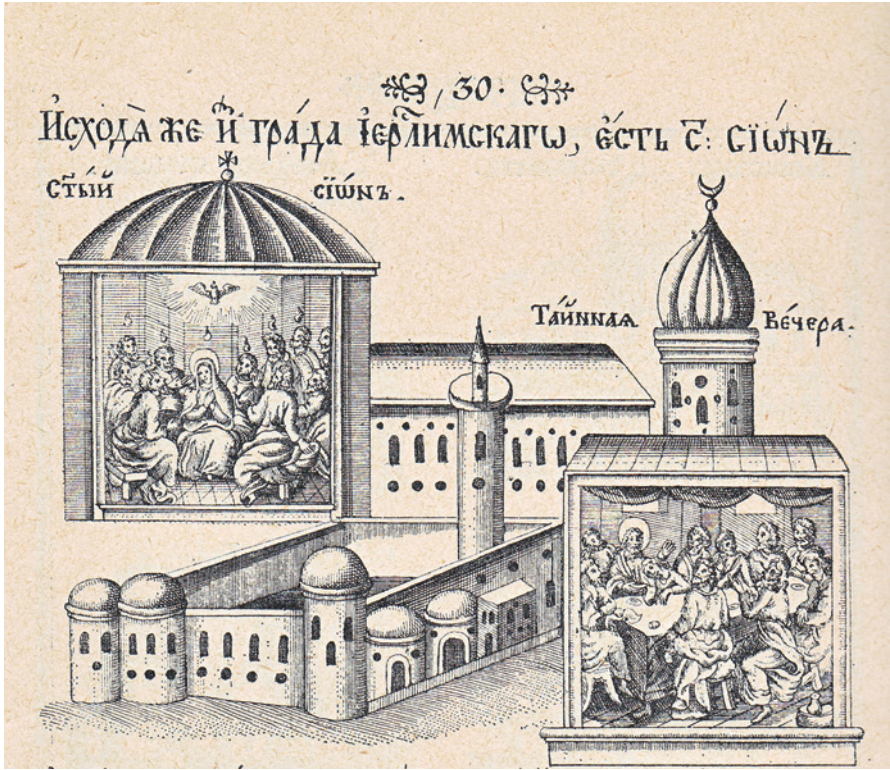 , 30 ·
И҆сходѧ̀ же и҆̾ гра́да і҆ер҇ли́мскагѡ, є҆́сть с҃: сїѡ́нъ
ст҃ы́й сїѡ́нъ.
Та́йннаѧ ве́чера.